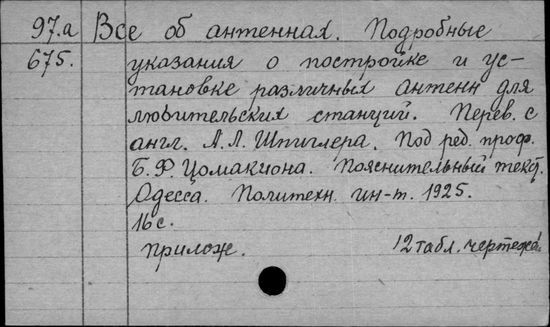 97.а Все об антеннах. Подробные
675. указания о постройке и ус-
тановке различных антенн для
любительских станций. Перев. с
англ. А.Л. Шпиглера. Под ред. проф.
Б.Ф. Цомакиона. Пояснительный текст.
Одесса. Политехн. ин-т. 1925.
16 с.
прилож. 12 табл. чертежей